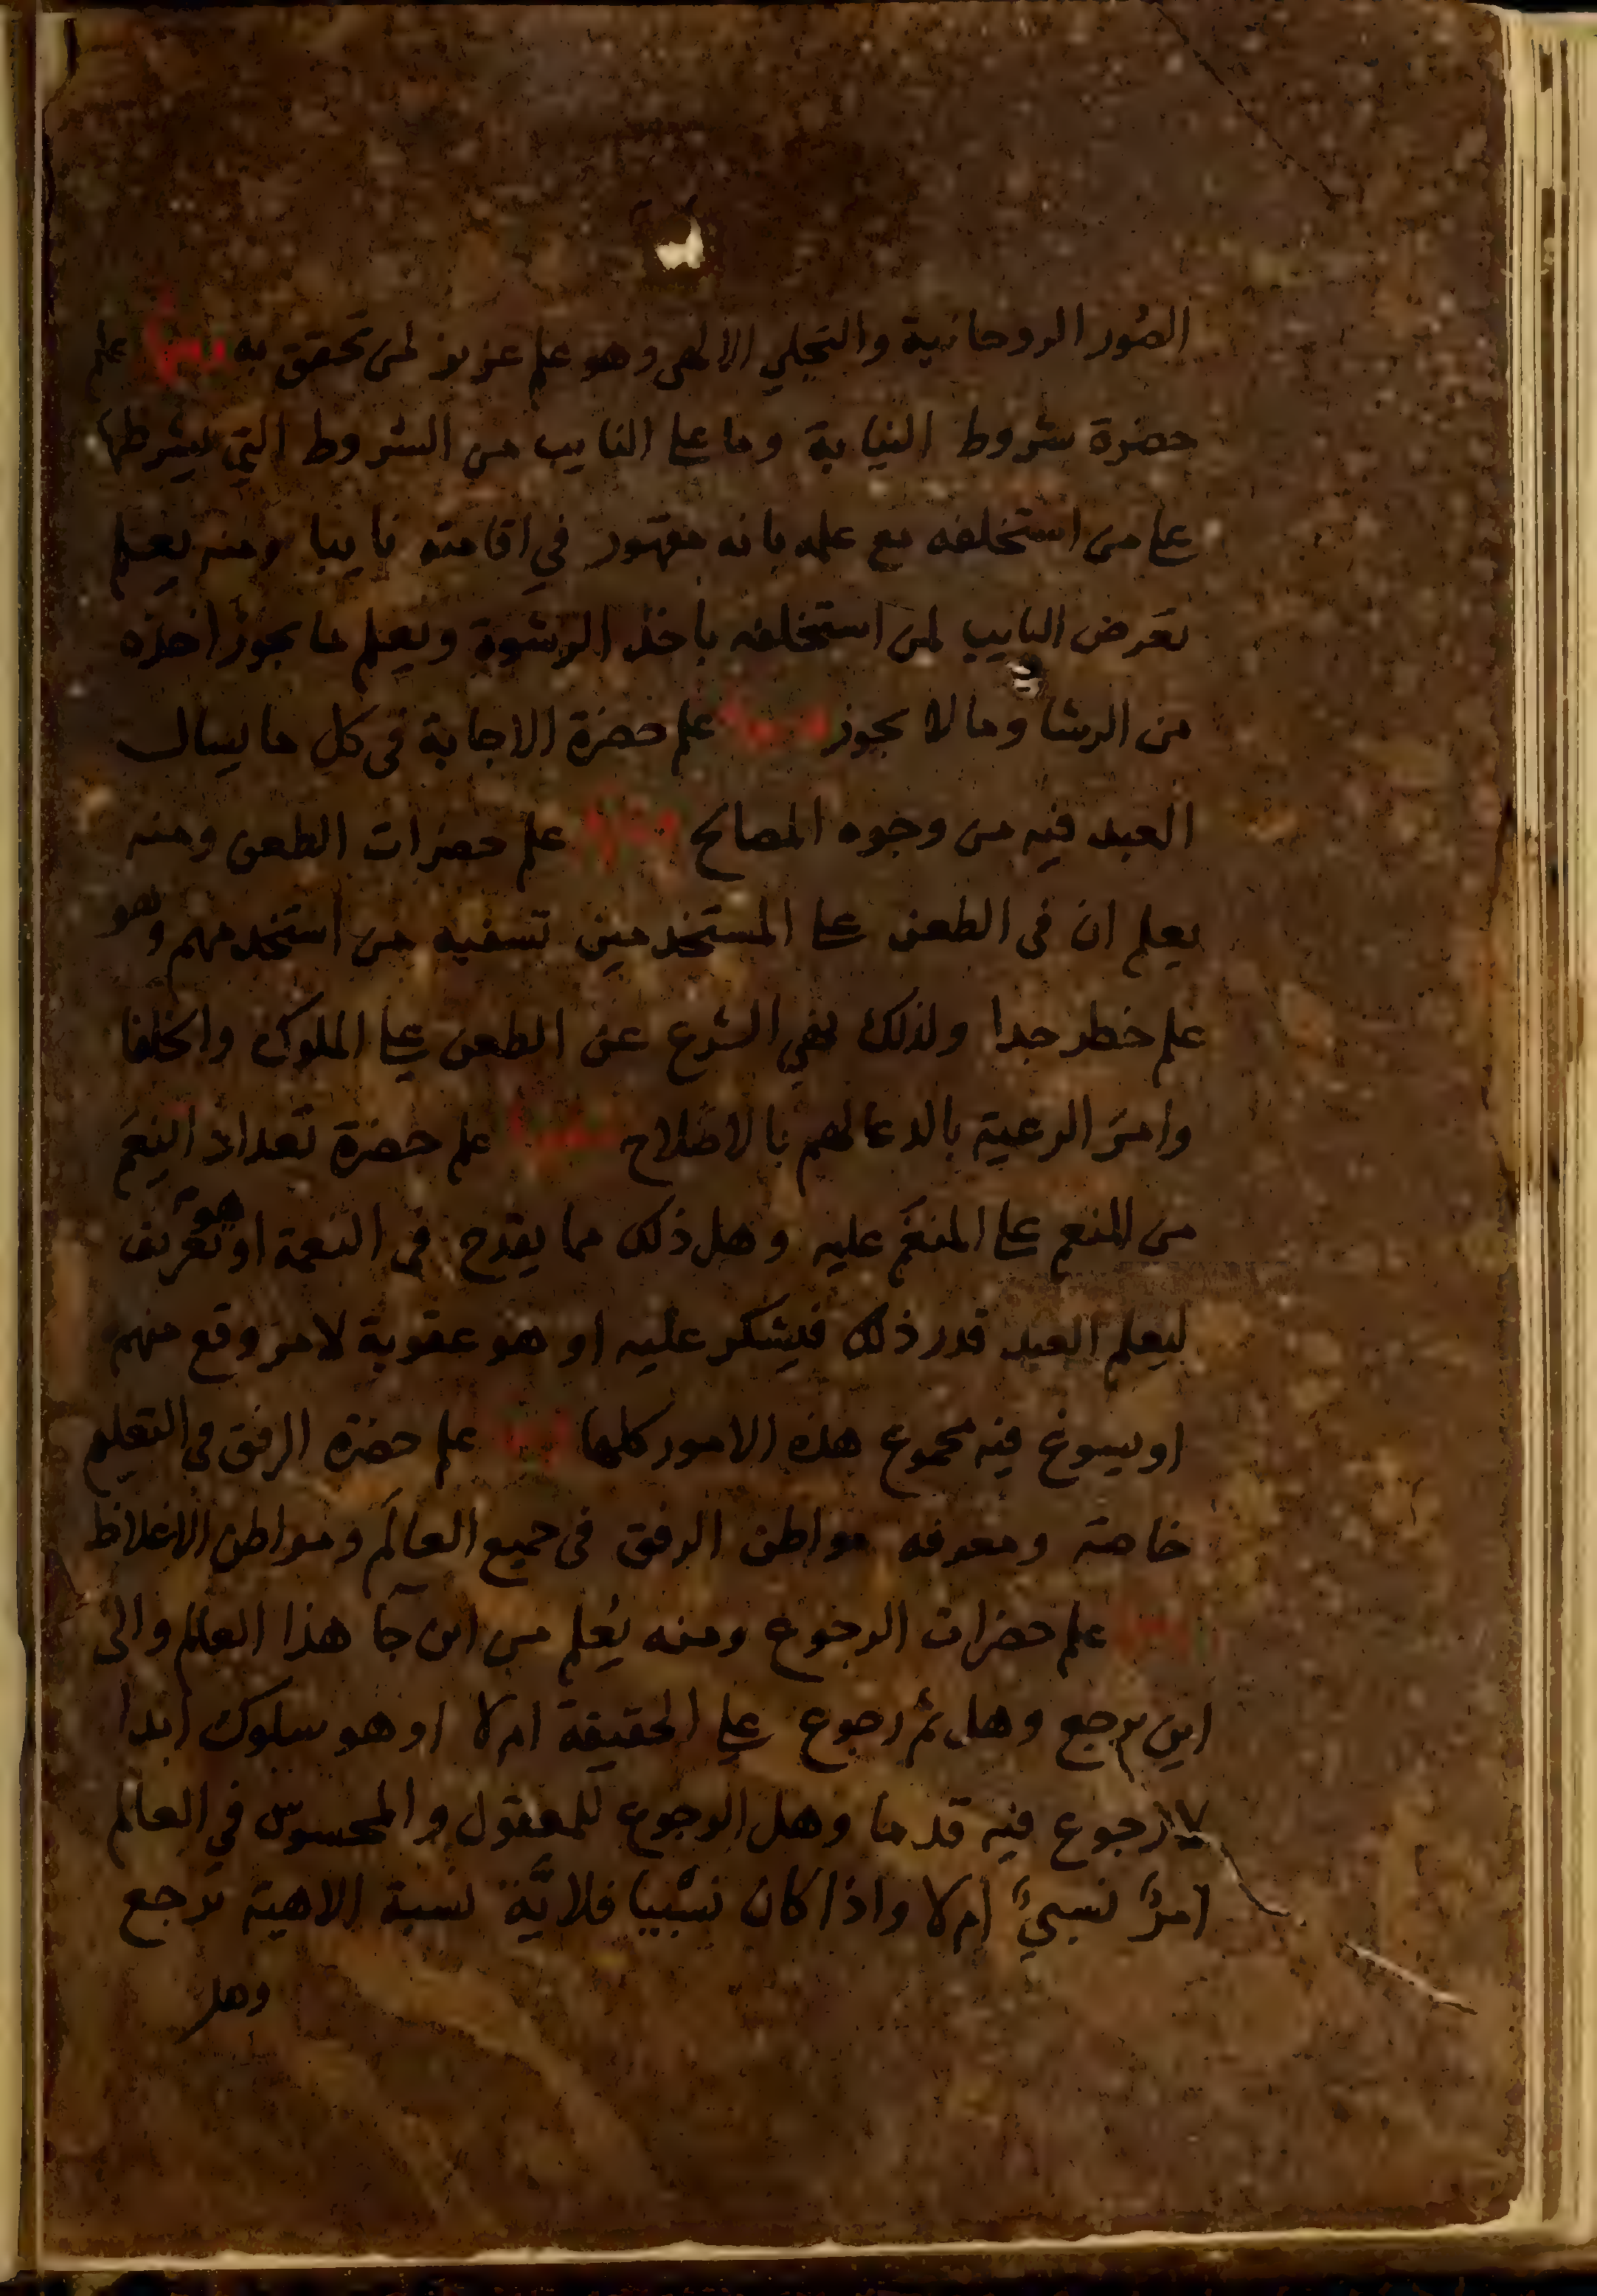 الصُور الروحانية والتجلي الالهى وهو علم عزيز لمن تحقق به ومنها علم
حضرة شروط النيابة وما على النايب من الشروط التي يشرطها
على من استخلفه مع علمه بانه مقهور في اقامته نايبا ومنه يعلم
تعرض النايب لمن استخلفه باخذ الرشوة ويعلم ما يجوز اخذه
من الرشا وما لا يجوز ومنها علم حضرة الاجابة فى كل ما يسال
العبد فيه من وجوه المصالح ومنها علم حضرات الطعن ومنه
يعلم ان فى الطعن على المستخدمين تسفيه من استخدمهم وهو
علم خطر جدا ولذلك نهي الشرع عن الطعن على الملوك والخلفا
وامرَ الرعية بالدعا لهم بالاصلاح ومنها علم حضرة تعداد النِعَم
من المنعم على المنعَم عليه وهل ذلك مما يقدح فى النعمة او هو تعريف
ليعلم العبد قدر ذلك فيشكر عليه او هو عقوبة لامر وقع منهم
او يسوغ فيه مجموع هذه الامور كلها ومنها علم حضرة الرفق في التعليم
خاصة ومعرفه مواطن الرفق فى جميع العالَم ومواطن الاغلاظ
ومنها علم حضرات الرجوع ومنه يُعلم من اين جآ هذا العالم والى
اين يرجع وهل ثم رجوع على الحقيقة ام لا او هو سلوك ابدا
لا رجوع فيه قدما وهل الرجوع للمعقول والمحسوس في العالم
امرٌ نسبيٌ ام لا واذا كان نسبيا فلايَّة نسبة الاهية ترجع
وهل